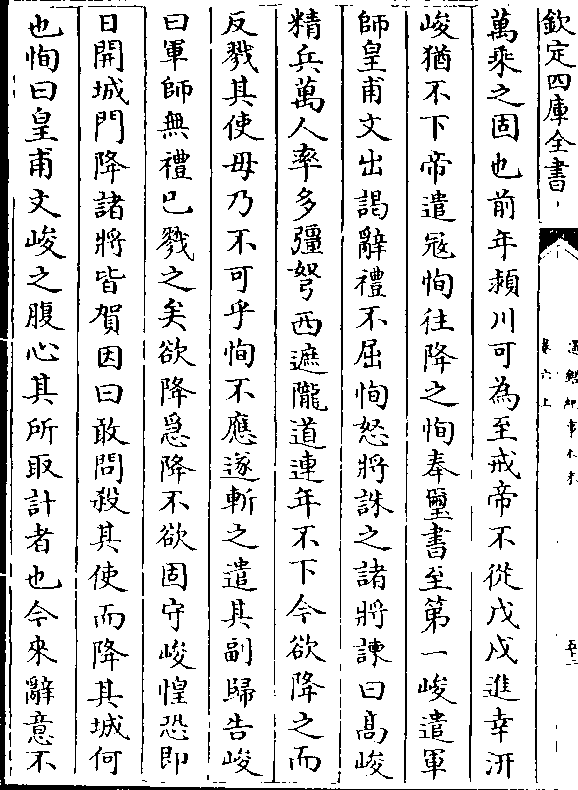 欽定四庫全書
萬乘之固也前年潁川可為至戒帝不從戊戌進幸汧
峻猶不下帝遣寇恂往降之恂奉璽書至第一峻遣軍
師皇甫文出謁辭禮不屈恂怒將誅之諸將諫曰髙峻
精兵萬人率多彊弩西遮隴道連年不下今欲降之而
反戮其使毋乃不可乎恂不應遂斬之遣其副歸告峻
曰軍師無禮已戮之矣欲降急降不欲固守峻惶恐即
日開城門降諸將皆賀因曰敢問殺其使而降其城何
也恂曰皇甫文峻之腹心其所取計者也今來辭意不
卷六上